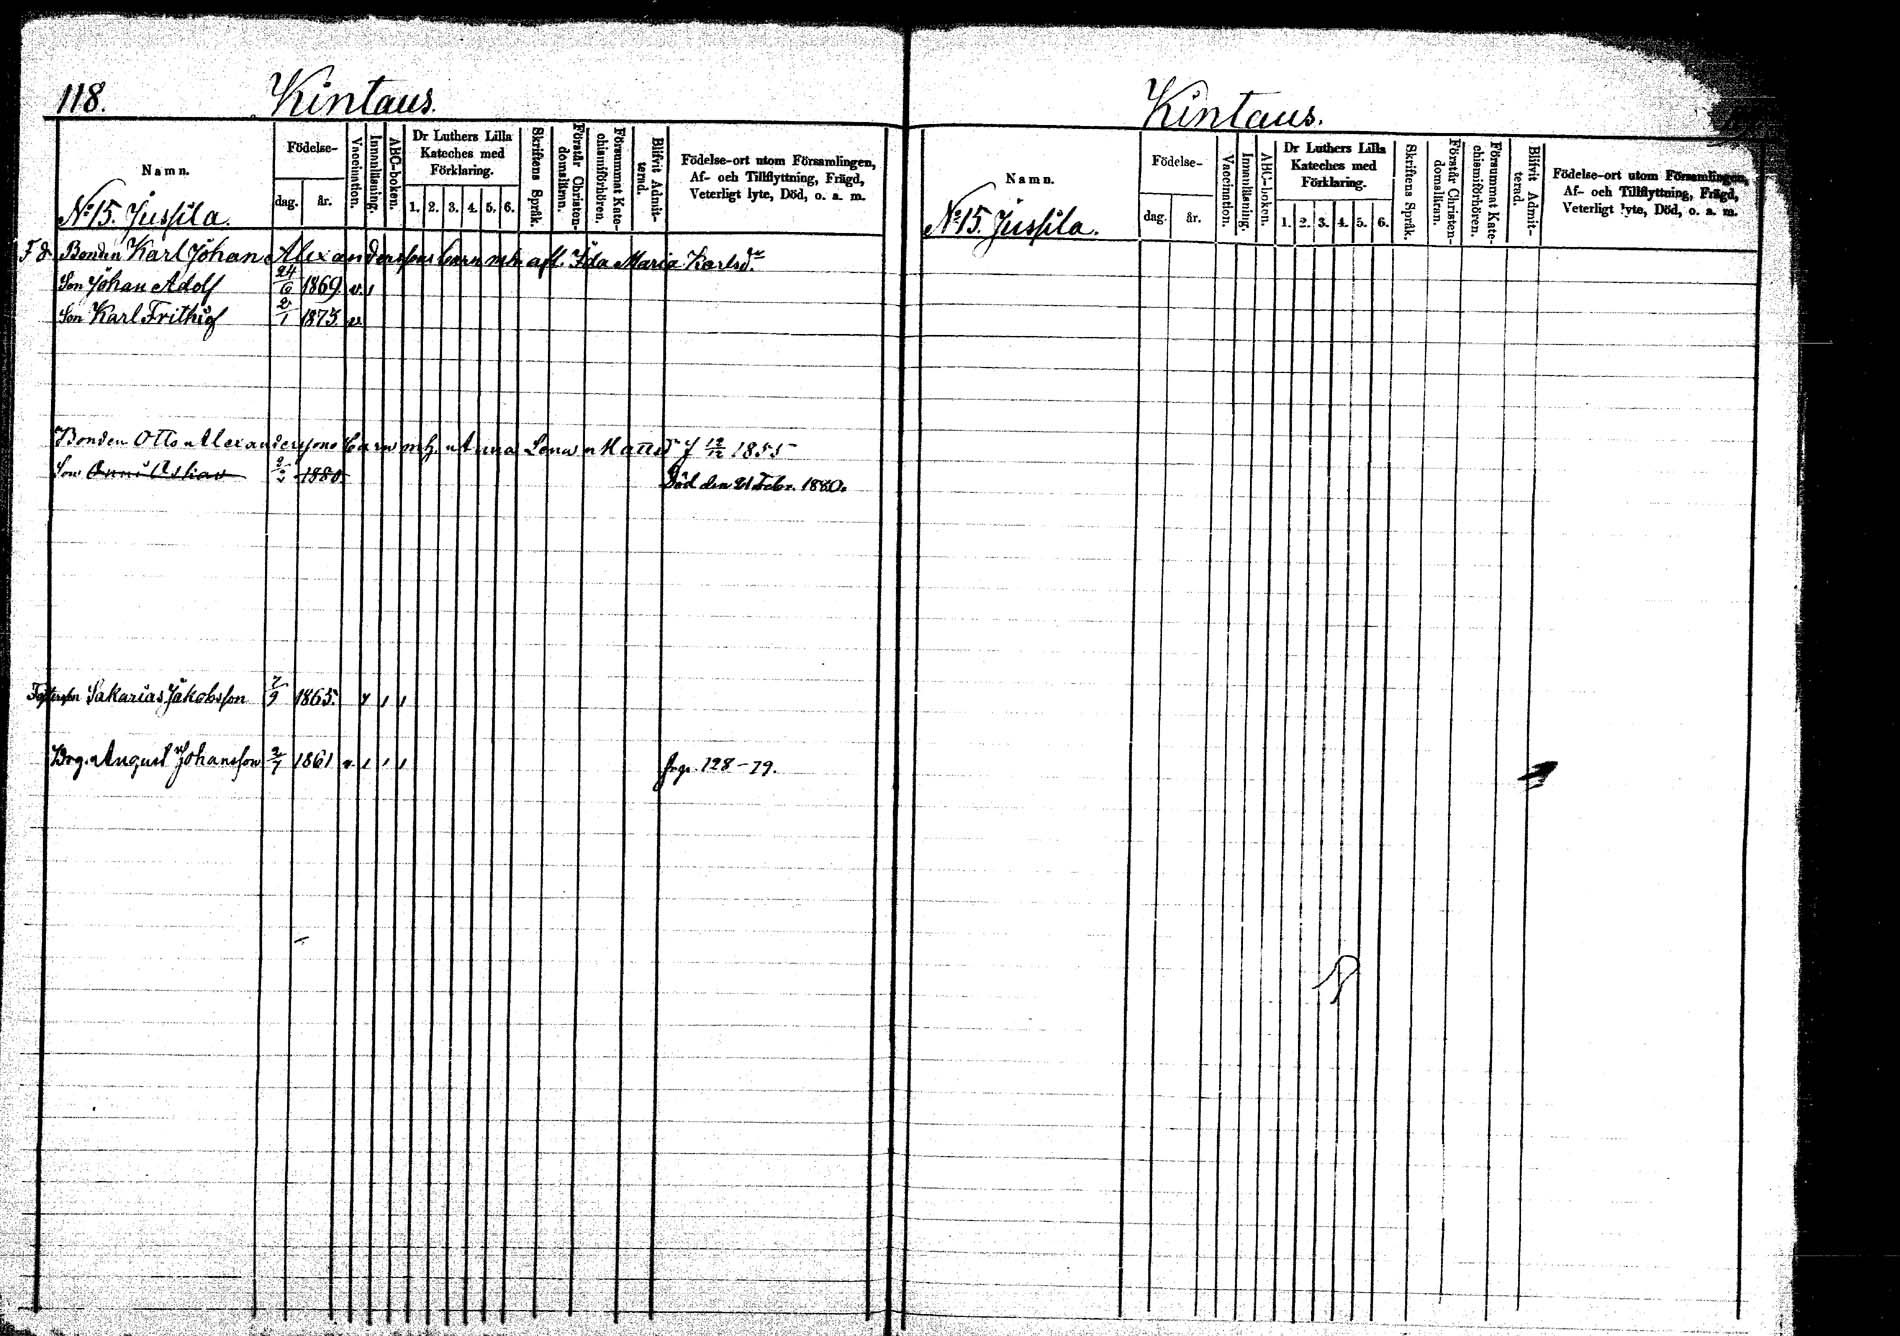 118. Kintaus.
Namn.
Födelse-
dag. år.
Vaccination.
Innanläsning.
ABC-boken.
Dr Luthers Lilla Kateches med Förklaring.
1. 2. 3. 4. 5. 6.
Skriftens Språk.
Förstår Christendomsläran.
Försummat Katechismiförhören.
Blifvit Admitterad.
Födelse-ort utom Församlingen,
Af- och Tillflyttning, Frägd,
Veterligt lyte, Död, o. a. m.
No 15. Jussila.
F d. Bonden Karl Johan Alexanderssons barn mh. afl. Ida Maria Karlsdr
Son Johan Adolf 24/6 1869. v. ı
Son Karl Frithiof 2/1 1875. v
Bonden Otto Alexanderssons barn mh. Anna Lena Mattsdr f 12/12 1855
Son Oskar 1880. Död den 21 Febr. 1880.
Fosterson Sakarias Jakobsson 7/9 1865. ı ı
Drg. August Johansson 2/7 1861 v. ı ı ı frp. 128-79.
Kintaus.
Namn.
Födelse-
dag. år.
Vaccination.
Innanläsning.
ABC-boken.
Dr Luthers Lilla Kateches med Förklaring.
1. 2. 3. 4. 5. 6.
Skriftens Språk.
Förstår Christendomsläran.
Försummat Katechismiförhören.
Blifvit Admitterad.
Födelse-ort utom Församlingen,
Af- och Tillflyttning, Frägd,
Veterligt lyte, Död, o. a. m.
No 15. Jussila.